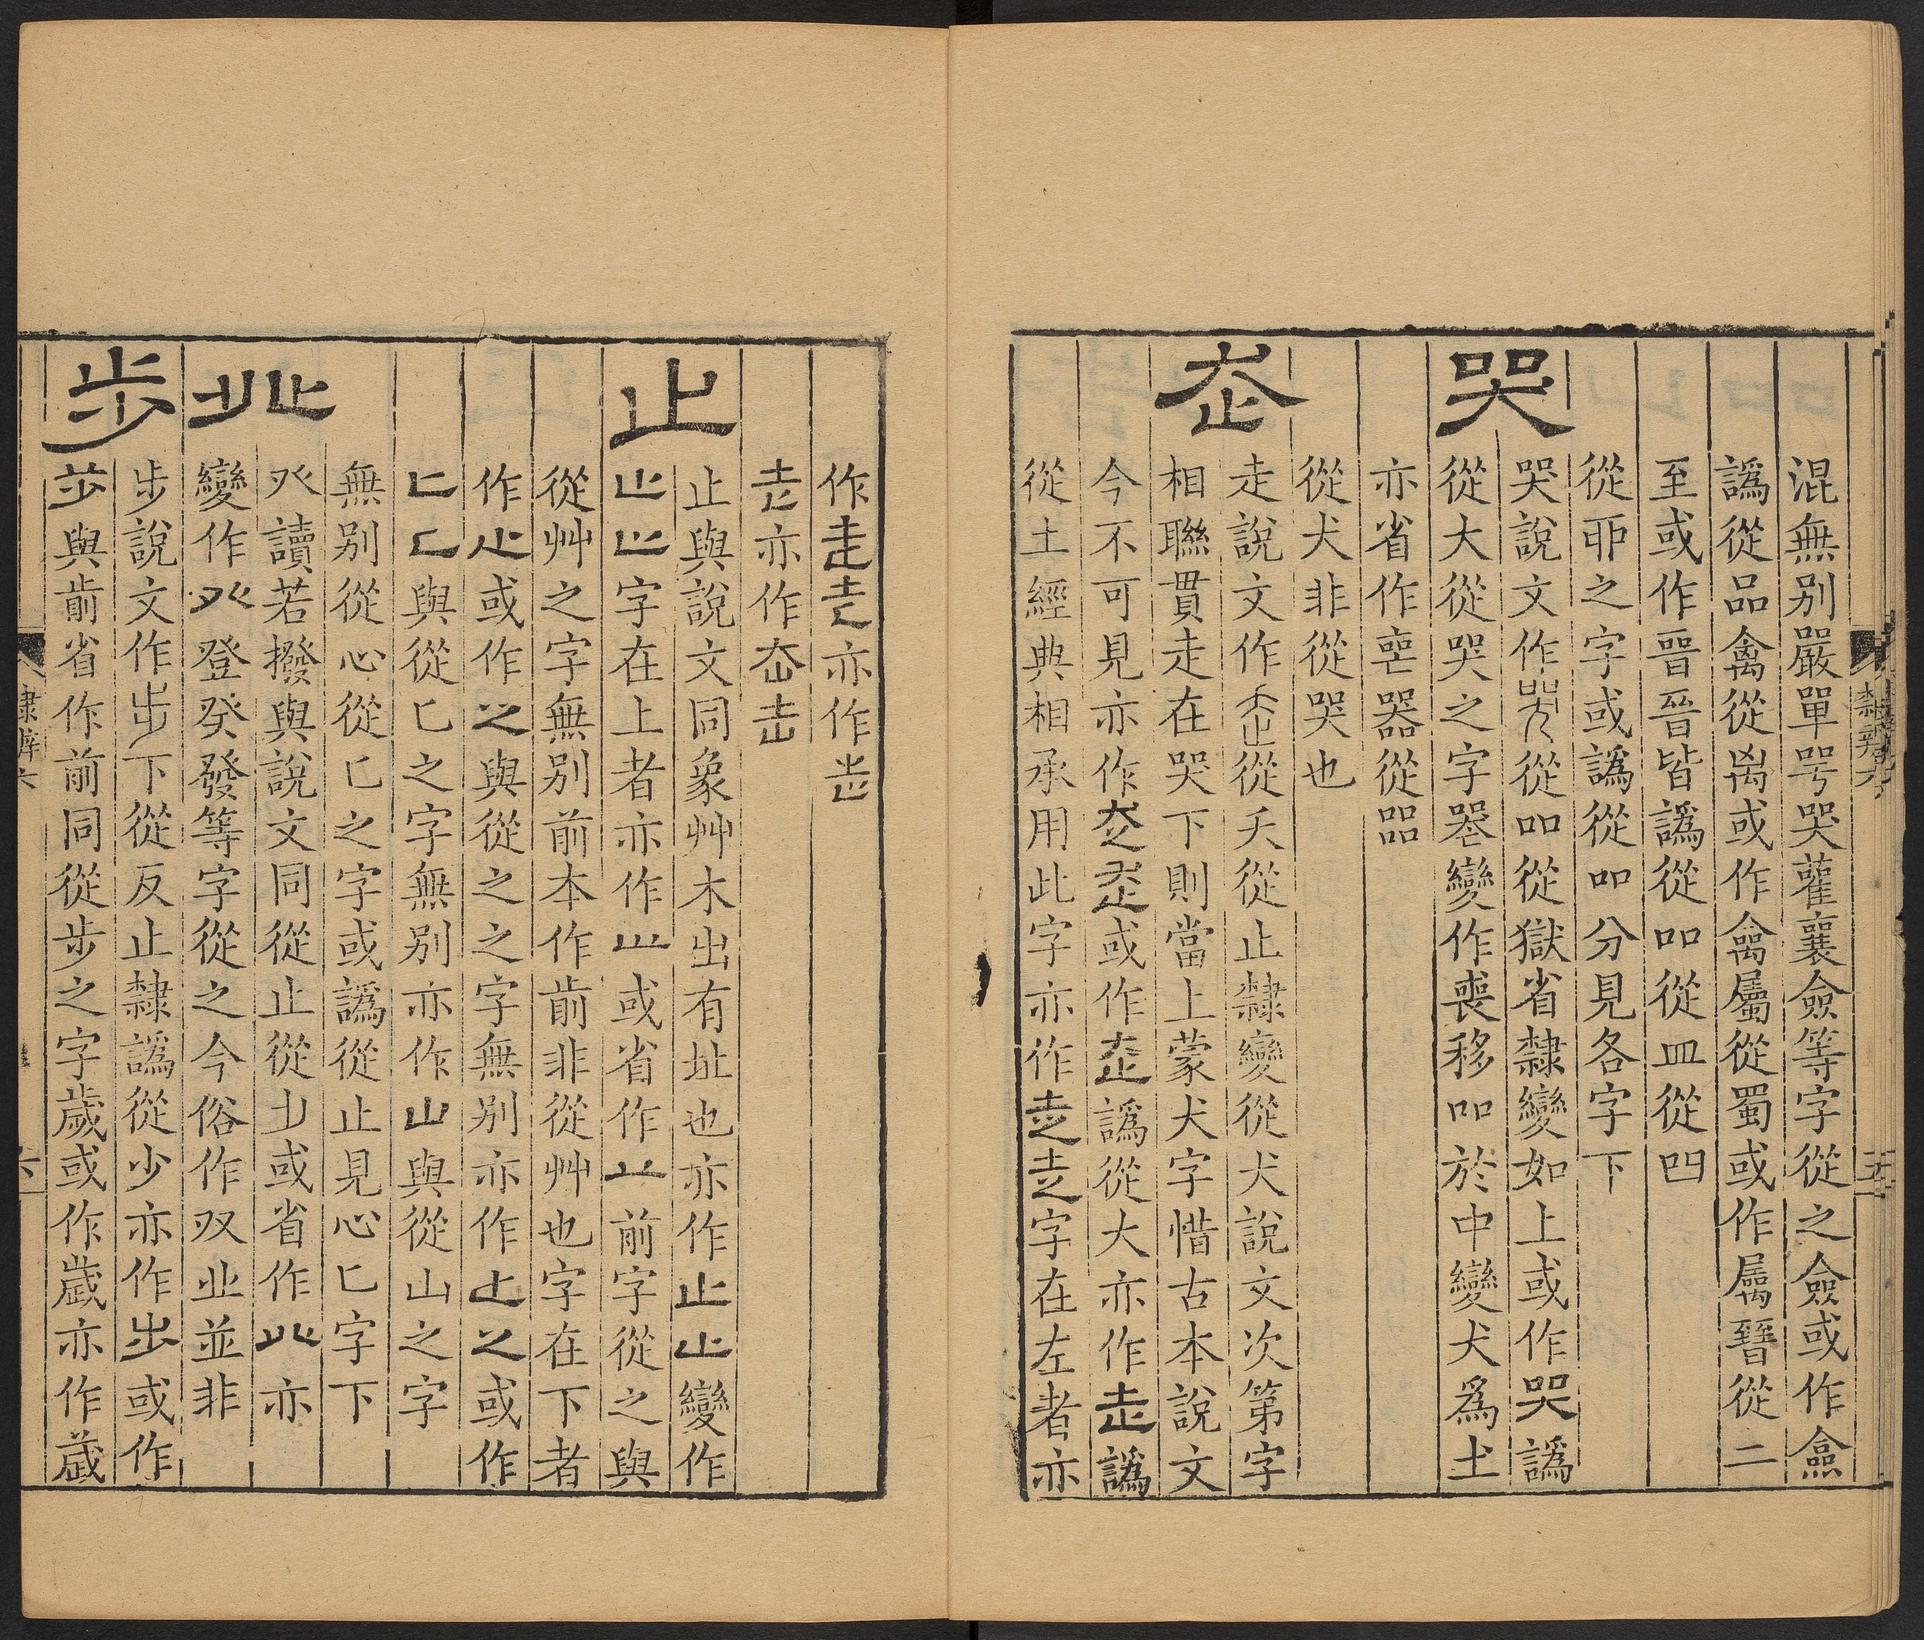 混無別嚴單咢哭雚襄僉等字從之僉或作𠎤
譌從品禽從𡴭或作禽屬從蜀或作屬晉從二
至或作𣈆晉皆譌從吅從皿從四
從耶之字或譌從吅分見各字下
哭
哭說文作哭從吅從獄省隸變如上或作哭譌
從大從哭之字𠸶變作喪移吅於中變犬爲土
亦省作喪器從㗊
從犬非從哭也
走
走說文作𧺆從夭從止隸變從犬說文次第字
相聯貫走在哭下則當上蒙犬字惜古本說文
今不可見亦作或作譌從大亦作走譌
從土經典相承用此字亦作字在左者亦
隸辨六
五
作亦作
亦作
止
止與說文同象艸木出有址也亦作變作
字在上者亦作或省作前字從之與
從艸之字無別前本作歬非從艸也字在下者
作或作之與從之之字無別亦作之或作
與從匕之字無別亦作山與從山之字
無別從心從匕之字或譌從止見心匕字下
癶
癶讀若撥與說文同從止從𣥂或省作亦
變作登癸發等字從之今俗作业並非
步
步說文作步下從反止隸譌從少亦作或作
與歬省作前同從步之字歲或作歲亦作歲
隸辨六
六